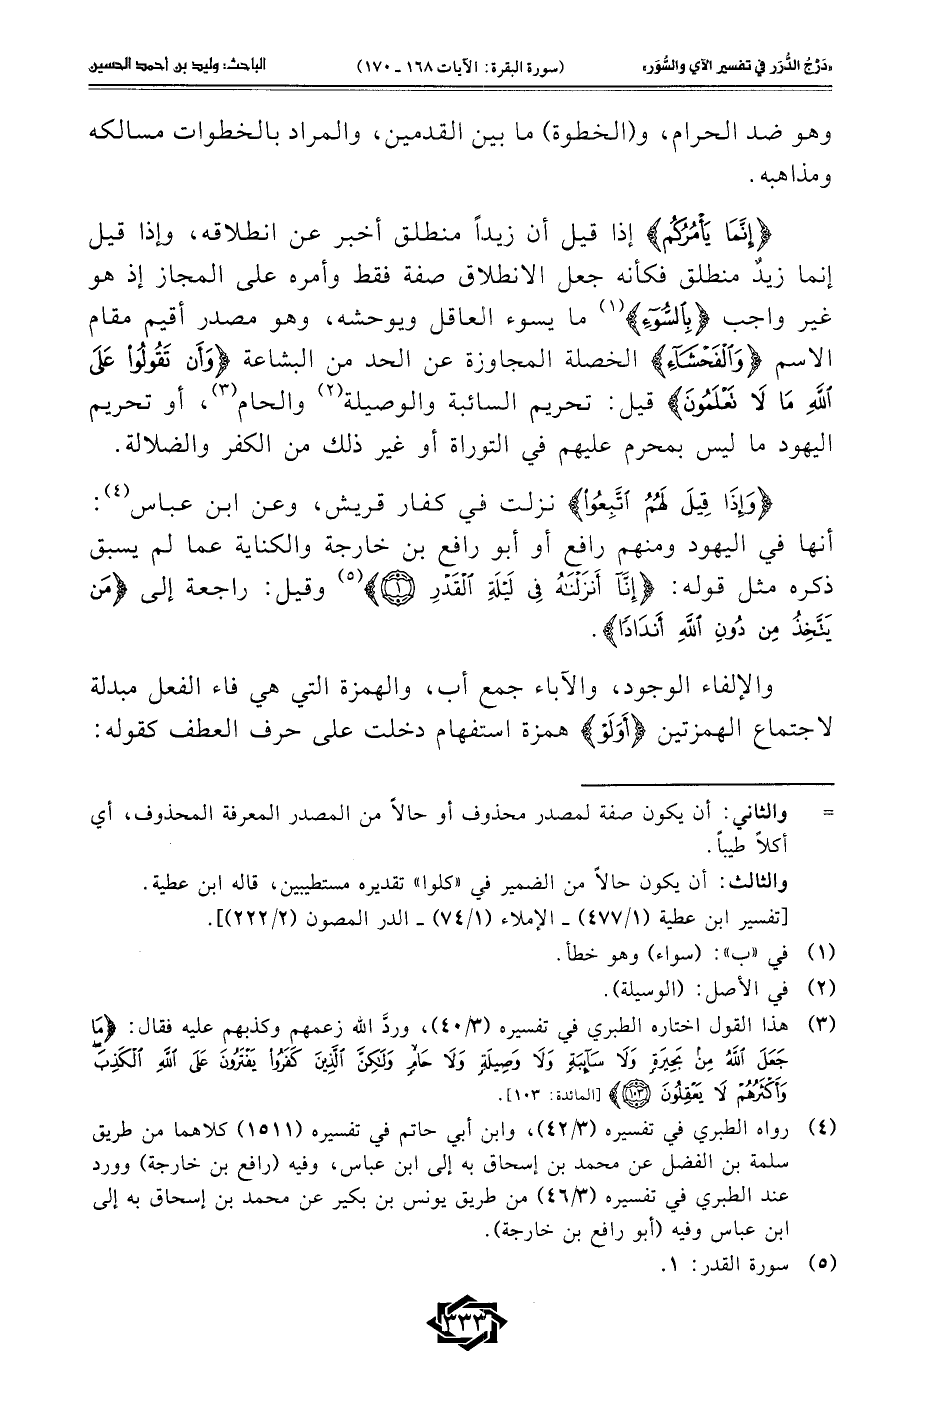 «دَرْجُ الدُّرَر في تفسير الآي والسُّوَر» (سورة البقرة: الآيات ١٦٨ ـ ١٧٠) الباحث: وليد بن أحمد الحسين
وهو ضد الحرام، و(الخطوة) ما بين القدمين، والمراد بالخطوات مسالكه
ومذاهبه.
﴿إِنَّمَا يَأْمُرُكُم﴾ إذا قيل أن زيداً منطلق أخبر عن انطلاقه، وإذا قيل
إنما زيدٌ منطلق فكأنه جعل الانطلاق صفة فقط وأمره على المجاز إذ هو
غير واجب ﴿بِٱلسُّوٓءِ﴾(١) ما يسوء العاقل ويوحشه، وهو مصدر أقيم مقام
الاسم ﴿وَٱلْفَحْشَآءِ﴾ الخصلة المجاوزة عن الحد من البشاعة ﴿وَأَن تَقُولُواْ عَلَى
ٱللَّهِ مَا لَا تَعْلَمُونَ﴾ قيل: تحريم السائبة والوصيلة(٢) والحام(٣)، أو تحريم
اليهود ما ليس بمحرم عليهم في التوراة أو غير ذلك من الكفر والضلالة.
﴿وَإِذَا قِيلَ لَهُمُ ٱتَّبِعُواْ﴾ نزلت في كفار قريش، وعن ابن عباس(٤):
أنها في اليهود ومنهم رافع أو أبو رافع بن خارجة والكناية عما لم يسبق
ذكره مثل قوله: ﴿إِنَّآ أَنزَلْنَٰهُ فِى لَيْلَةِ ٱلْقَدْرِ ١﴾(٥) وقيل: راجعة إلى ﴿مَن
يَتَّخِذُ مِن دُونِ ٱللَّهِ أَندَادًا﴾.
والإلفاء الوجود، والآباء جمع أب، والهمزة التي هي فاء الفعل مبدلة
لاجتماع الهمزتين ﴿أَوَلَوْ﴾ همزة استفهام دخلت على حرف العطف كقوله:
= والثاني: أن يكون صفة لمصدر محذوف أو حالاً من المصدر المعرفة المحذوف، أي
أكلاً طيباً.
والثالث: أن يكون حالاً من الضمير في «كلوا» تقديره مستطيبين، قاله ابن عطية.
[تفسير ابن عطية (٤٧٧/١) ـ الإملاء (٧٤/١) ـ الدر المصون (٢٢٢/٢)].
(١) في «ب»: (سواء) وهو خطأ.
(٢) في الأصل: (الوسيلة).
(٣) هذا القول اختاره الطبري في تفسيره (٤٠/٣)، وردَّ الله زعمهم وكذبهم عليه فقال: ﴿مَا
جَعَلَ ٱللَّهُ مِنۢ بَحِيرَةٍ وَلَا سَآئِبَةٍ وَلَا وَصِيلَةٍ وَلَا حَامٍ وَلَٰكِنَّ ٱلَّذِينَ كَفَرُواْ يَفْتَرُونَ عَلَى ٱللَّهِ ٱلْكَذِبَ
وَأَكْثَرُهُمْ لَا يَعْقِلُونَ ١٠٣﴾ [المائدة: ١٠٣].
(٤) رواه الطبري في تفسيره (٤٢/٣)، وابن أبي حاتم في تفسيره (١٥١١) كلاهما من طريق
سلمة بن الفضل عن محمد بن إسحاق به إلى ابن عباس، وفيه (رافع بن خارجة) وورد
عند الطبري في تفسيره (٤٦/٣) من طريق يونس بن بكير عن محمد بن إسحاق به إلى
ابن عباس وفيه (أبو رافع بن خارجة).
(٥) سورة القدر: ١.
٣٣٣